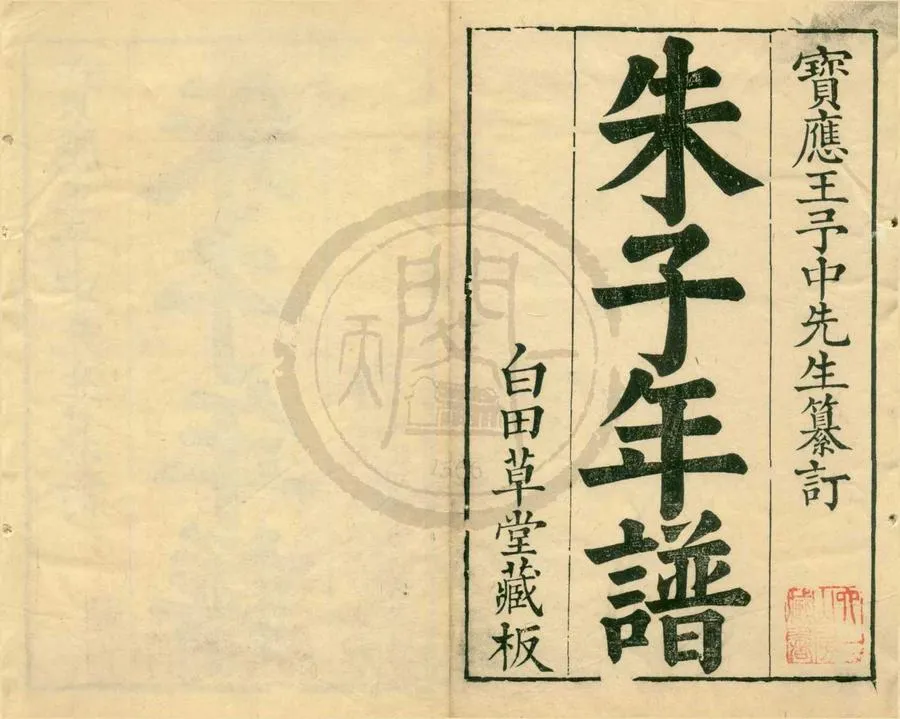 寶應王予中先生纂訂
朱子年譜
白田草堂藏板
天一閣
1566